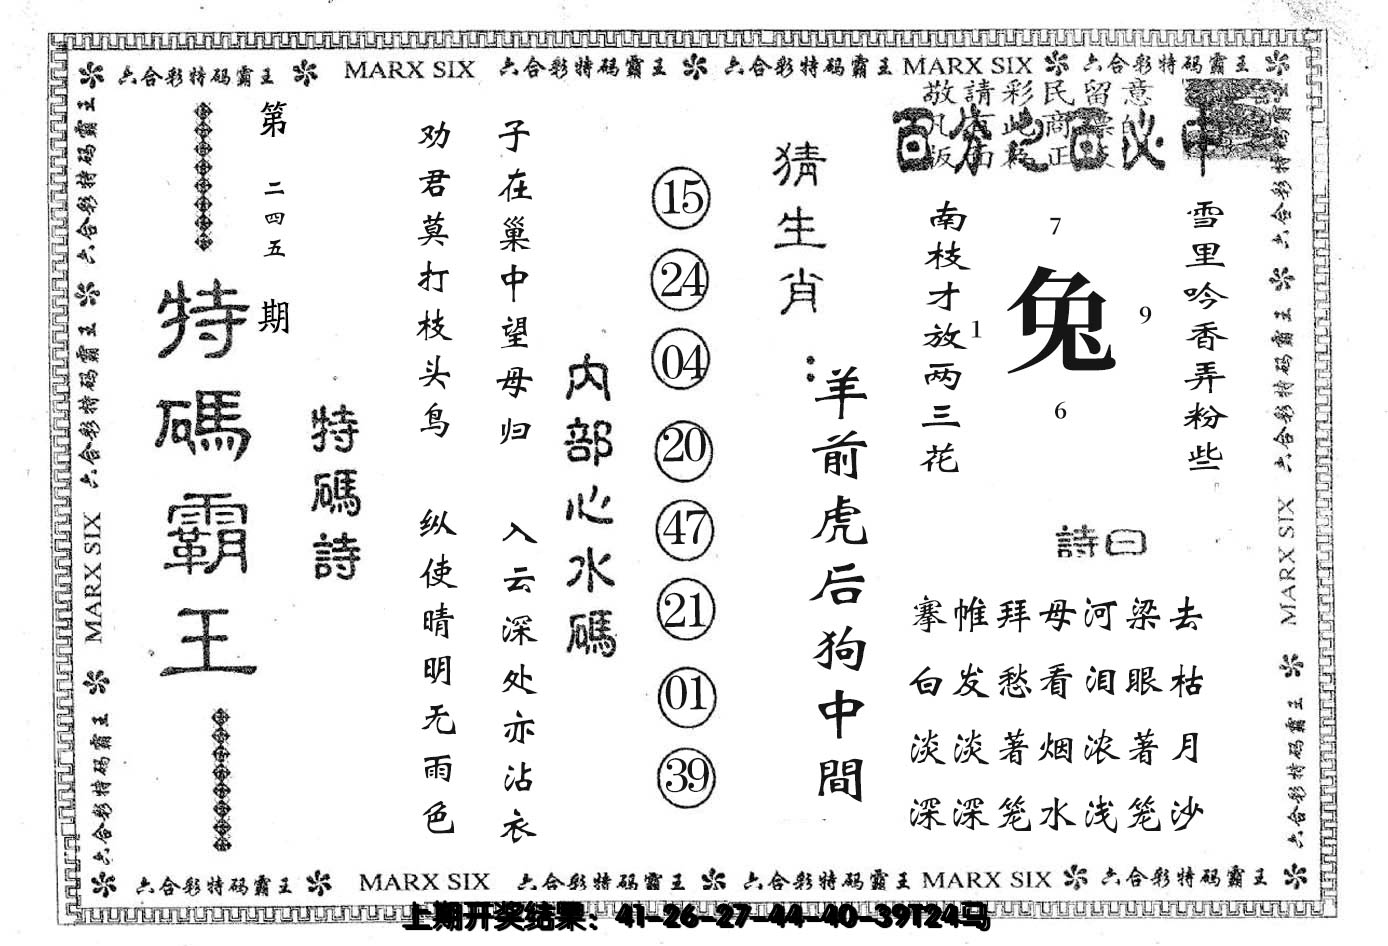 六合彩特码霸王 MARX SIX 六合彩特码霸王 六合彩特码霸王 MARX SIX 六合彩特码霸王
六合彩特码霸王 六合彩特码霸王 MARX SIX 六合彩特码霸王
第二四五期
特碼霸王
特碼詩
劝君莫打枝头鸟
子在巢中望母归
纵使晴明无雨色
入云深处亦沾衣
内部心水碼
15
24
04
20
47
21
01
39
猜生肖：
羊前虎后狗中間
敬請彩民留意
百分之百必中
南枝才放两三花
7
1
兔
9
6
雪里吟香弄粉些
詩曰
搴帷拜母河梁去
白发愁看泪眼枯
淡淡著烟浓著月
深深笼水浅笼沙
六合彩特码霸王 六合彩特码霸王 MARX SIX 六合彩特码霸王
六合彩特码霸王 MARX SIX 六合彩特码霸王 六合彩特码霸王 MARX SIX 六合彩特码霸王
上期开奖结果：41-26-27-44-40-39T24马